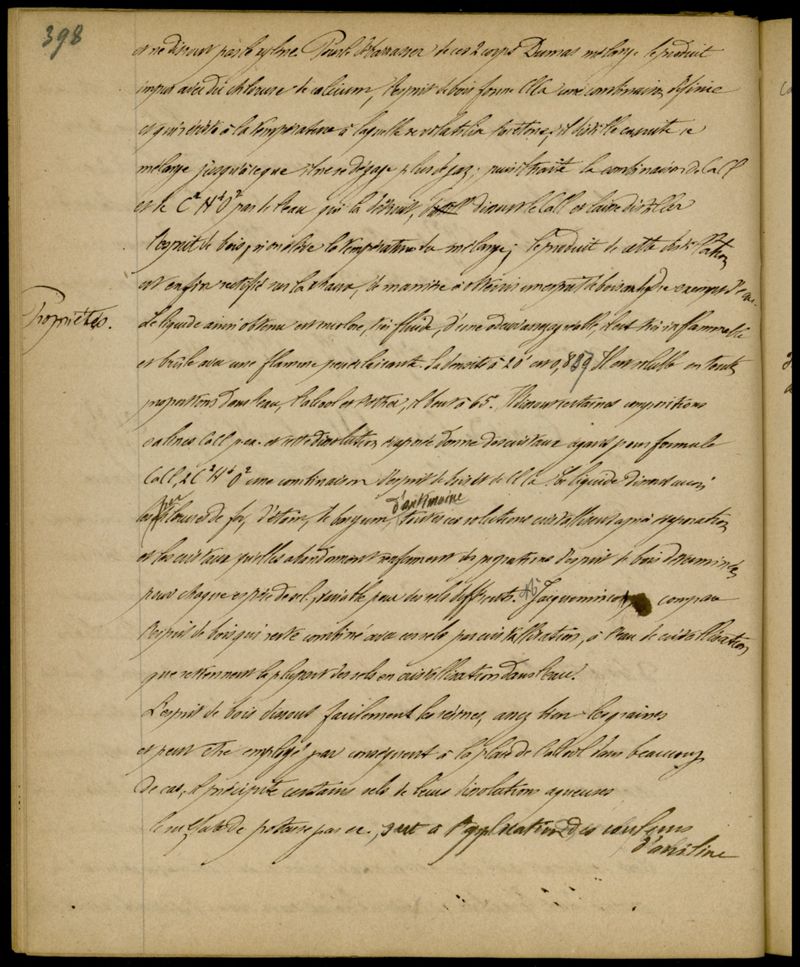 398
et ne dissout pas le xylène. Pour le débarrasser de ces 2 corps Dumas mélange le produit
impur avec du chlorure de calcium, l'esprit de bois forme là une combinaison définie
et qui résiste à la température à laquelle se volatilise l'acétone, il distille ensuite ce
mélange jusqu'à ce que il ne se dégage plus de gaz; puis traite la combinaison de CaCl
et de C²H⁴O² par de l'eau qui la détruit, dissout le CaCl et laisse distiller
l'esprit de bois, si on élève la température du mélange; le produit de cette distillation
est enfin rectifié sur la chaux, de manière à obtenir un esprit de bois exempt d'eau.
Propriétés.
Le liquide ainsi obtenu est incolore, très fluide, d'une odeur, il est très inflammable
et brûle avec une flamme peu éclairante. Sa densité à 20° est 0,8 Il est soluble en toutes
proportions dans l'eau, l'alcool et l'éther; il bout à 65°. Il dissout certaines compositions
salines CaCl p. ex. et cette dissolution évaporée donne des cristaux ayant pour formule
CaCl, 2C²H⁴O² une combinaison d'esprit de bois et de ClCa. Ce liquide dissout aussi
les chlorures de fer, d'étain, de baryum, d'antimoine toutes ces solutions cristallisent après évaporation
et les cristaux qu'elles abandonnent renferment des proportions d'esprit de bois déterminées
pour chaque espèce de sel, variable pour des sels différents. Mr Jacquemin compare
l'esprit de bois qui reste combiné avec ces sels par cristallisation, à l'eau de cristallisation
que retiennent la plupart des sels en cristallisation dans l'eau.
L'esprit de bois dissout facilement les résines, assez bien les graisses
et peut être employé par conséquent à la place de l'alcool dans beaucoup
de cas, il précipite certains sels de leurs dissolutions aqueuses
le sulfate de potasse par ex., sert à l'application des couleurs
d'aniline